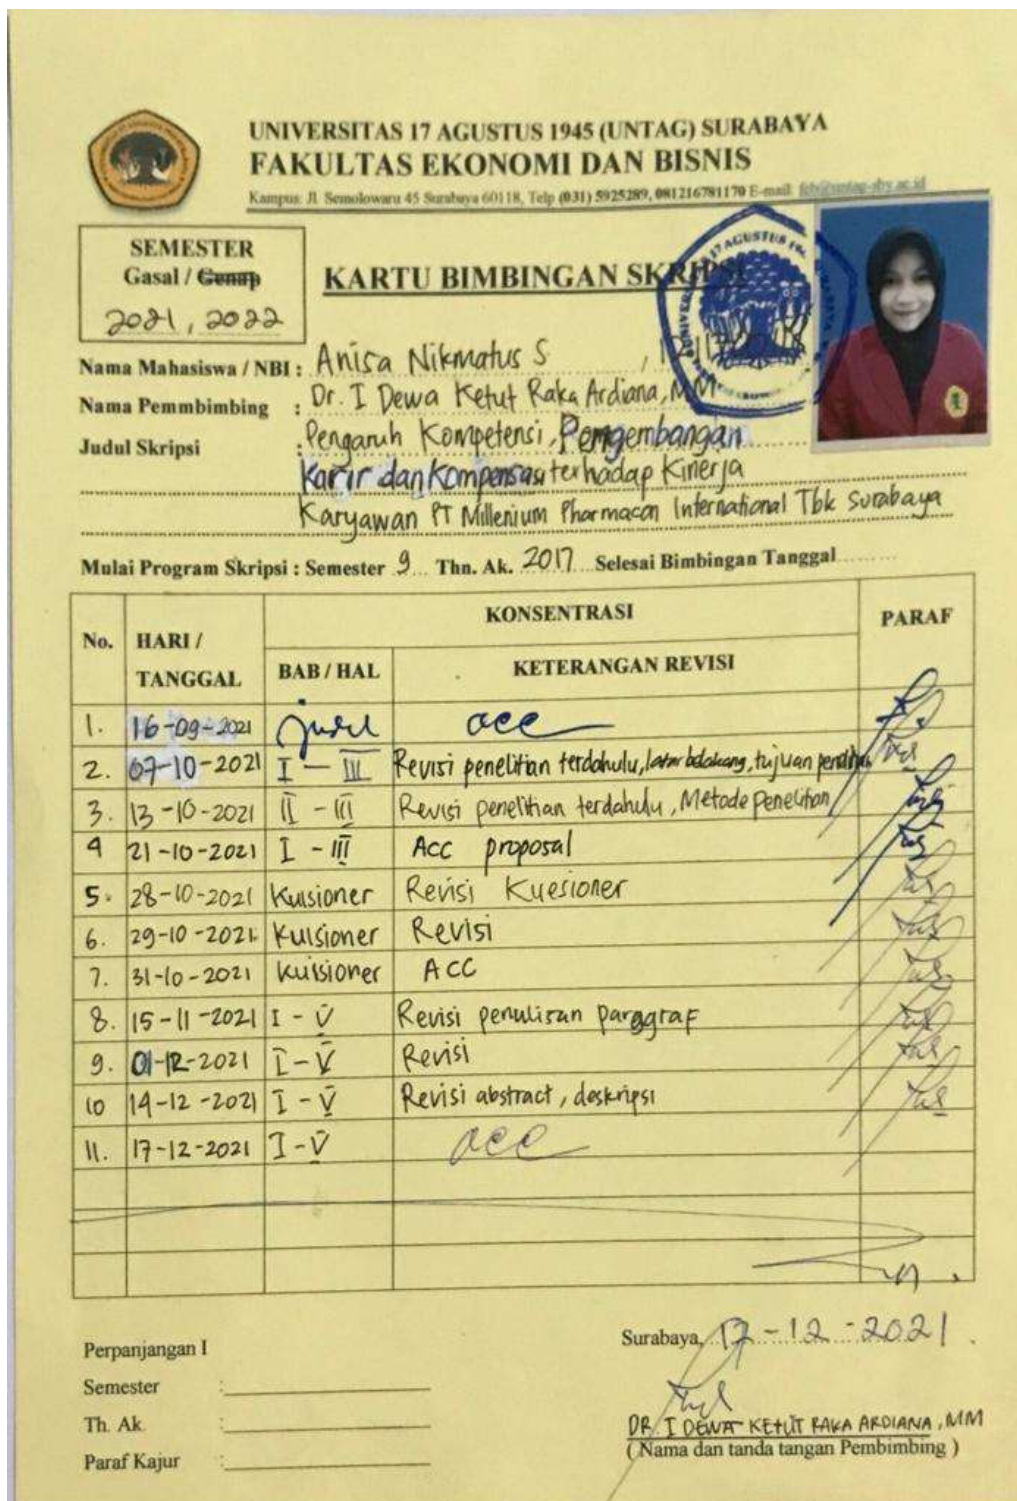 UNIVERSITAS 17 AGUSTUS 1945 (UNTAG) SURABAYA
FAKULTAS EKONOMI DAN BISNIS
Kampus: Jl. Semolowaru 45 Surabaya 60118, Telp (031) 5925289, 081216781170 E-mail: feb@untag-sby.ac.id
SEMESTER
Gasal / Genap
2021, 2022
KARTU BIMBINGAN SKRIPSI
Nama Mahasiswa / NBI : Anisa Nikmatus S ,
Nama Pemmbimbing : Dr. I Dewa Ketut Raka Ardiana, MM
Judul Skripsi : Pengaruh Kompetensi, Pemgembangan
Karir dan Kompensasi terhadap Kinerja
Karyawan PT Millenium Pharmacon International Tbk Surabaya
Mulai Program Skripsi : Semester 9 Thn. Ak. 2017 Selesai Bimbingan Tanggal
No. HARI / TANGGAL KONSENTRASI PARAF
BAB / HAL KETERANGAN REVISI
1. 16-09-2021 judul acc
2. 07-10-2021 I - III Revisi penelitian terdahulu, latar belakang, tujuan penelitian
3. 13-10-2021 II - III Revisi penelitian terdahulu, Metode penelitian
4 21-10-2021 I - III Acc proposal
5. 28-10-2021 Kuisioner Revisi Kuesioner
6. 29-10-2021 Kuisioner Revisi
7. 31-10-2021 Kuisioner ACC
8. 15-11-2021 I - V Revisi penulisan paragraf
9. 01-12-2021 I - V Revisi
10 14-12-2021 I - V Revisi abstract, deskripsi
11. 17-12-2021 I - V acc
Surabaya, 17-12-2021.
Perpanjangan I
Semester :
Th. Ak. :
Paraf Kajur :
DR. I DEWA KETUT RAKA ARDIANA, MM
( Nama dan tanda tangan Pembimbing )